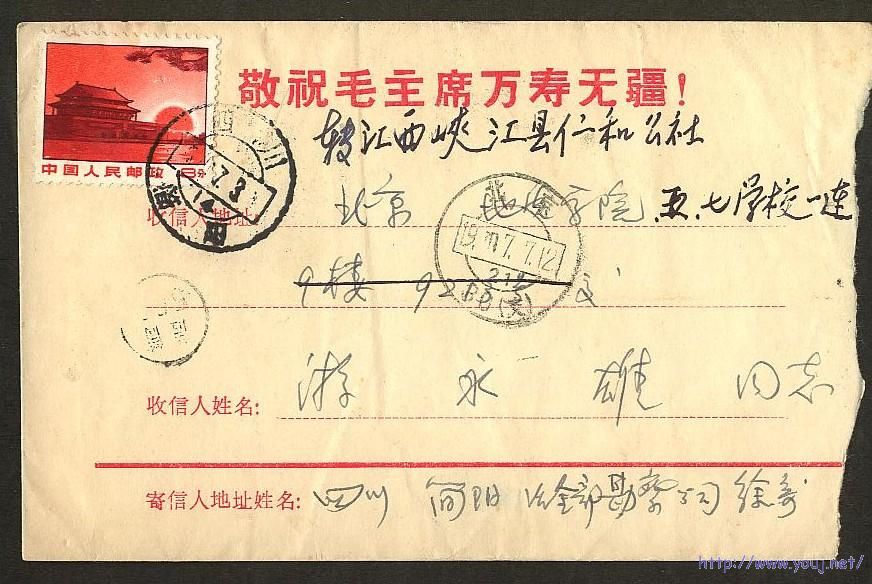 敬祝毛主席万寿无疆!
转江西峡江县仁和公社
中国人民邮政 8分
收信人地址: 北京 地质学院 五.七学校一连
9楼 92
收信人姓名: 游永雄 同志
寄信人地址姓名: 四川 简阳 冶金部勘察公司 徐寄
四川
7.3
14
北京
1970.7.7.12
http://www.youj.net/